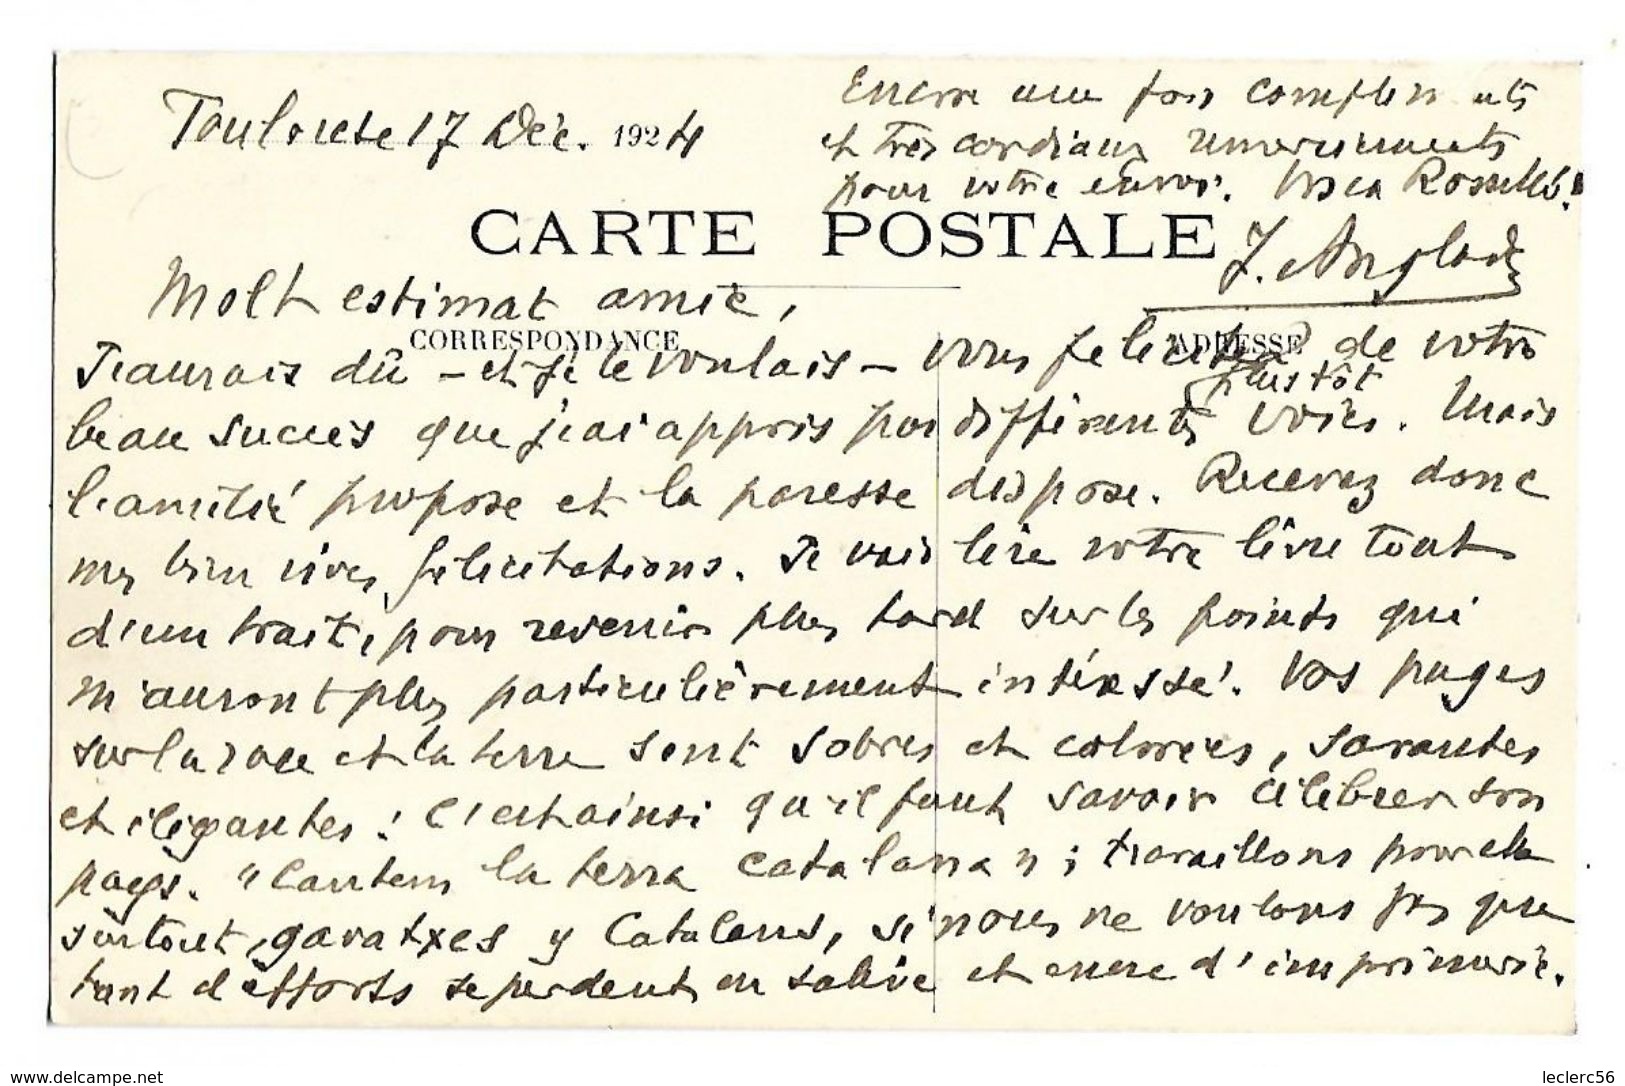 Toulouse 17 Déc. 1924
CARTE POSTALE
Molt estimat amic,
CORRESPONDANCE
ADRESSE
J'aurais dû – et je le voulais – vous féliciter de votre
plus tôt
beau succès que j'ai appris par différentes voies. Mais
l'amitié propose et la paresse dispose. Recevez donc
mes bien vives félicitations. Je vais lire votre livre tout
d'un trait, pour revenir plus tard sur les points qui
m'auront plus particulièrement intéressé. Vos pages
sur la race et la terre sont sobres et colorées, savantes
et élégantes : c'est ainsi qu'il faut savoir célébrer son
pays. "Cantem la terra catalana" ; travaillons pour elle
surtout, gavatxes y Catalans, si nous ne voulons pas que
tant d'efforts se perdent en salive et encre d'imprimerie.
Encore une fois compliments
et très cordiaux remerciements
pour votre envoi. Visca Rosselló!
J. Anglade
www.delcampe.net
leclerc56